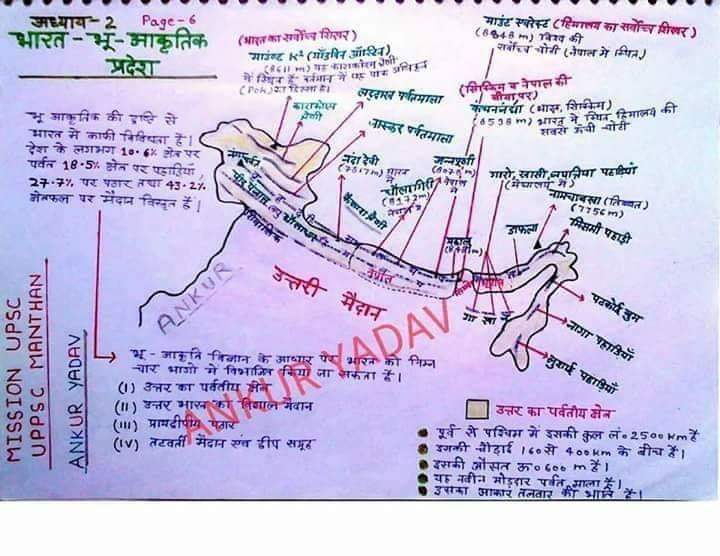 अध्याय-2 Page-6
भारत-भू-आकृतिक
प्रदेश
(भारत का सर्वोच्च शिखर)
माउण्ट K² (गॉडविन ऑस्टिन)
(8611 m) यह काराकोरम श्रेणी
में स्थित है- वर्तमान में यह पाक अधिकृत
(Pok) का हिस्सा है।
माउंट एवरेस्ट (हिमालय का सर्वोच्च शिखर)
(8848 m) विश्व की
सर्वोच्च चोटी (नेपाल में स्थित)
(सिक्किम व नेपाल की
सीमा पर)
कंचनजंघा (भारत, सिक्किम)
(8598 m) भारत में स्थित हिमालय की
सबसे ऊंची चोटी
भू आकृतिक की दृष्टि से
भारत में काफी विविधता है।
देश के लगभग 10.6% क्षेत्र पर
पर्वत 18.5% क्षेत्र पर पहाड़ियां,
27.7% पर पठार तथा 43.2%
क्षेत्रफल पर मैदान विस्तृत हैं।
काराकोरम
श्रेणी
लद्दाख पर्वतमाला
जास्कर पर्वतमाला
नंगापर्वत
पीर पंजाल
लघु
धौलाधर
शिवालिक
नंदा देवी
(7817 m) भारत में
धौलागिरी
(8172 m)
नेपाल में
अन्नपूर्णा
(8078 m)
नेपाल में
कैलाश श्रेणी
गारो, खासी, जयन्तिया पहाड़ियां
(मेघालय में)
नामचाबरवा (तिब्बत)
(7756 m)
मिसमी पहाड़ी
डाफला
मकालू
(8481 m)
नेपाल
सिक्किम
भूटान
गा खा
पटकोई बुम
नागा पहाड़ियाँ
लुशाई पहाड़ियाँ
उत्तरी मैदान
ANKUR
ANKUR YADAV
भू-आकृति विज्ञान के आधार पर भारत को निम्न
चार भागों में विभाजित किया जा सकता है।
(I) उत्तर का पर्वतीय क्षेत्र
(II) उत्तर भारत का विशाल मैदान
(III) प्रायद्वीपीय पठार
(IV) तटवर्ती मैदान एवं द्वीप समूह
उत्तर का पर्वतीय क्षेत्र
पूर्व से पश्चिम में इसकी कुल लं० 2500 km है
इसकी चौड़ाई 160 से 400 km के बीच है।
इसकी औसत ऊ० 600 m है।
यह नवीन मोड़दार पर्वत माला है।
इसका आकार तलवार की भांति है।
MISSION UPSC
UPPSC MANTHAN
ANKUR YADAV